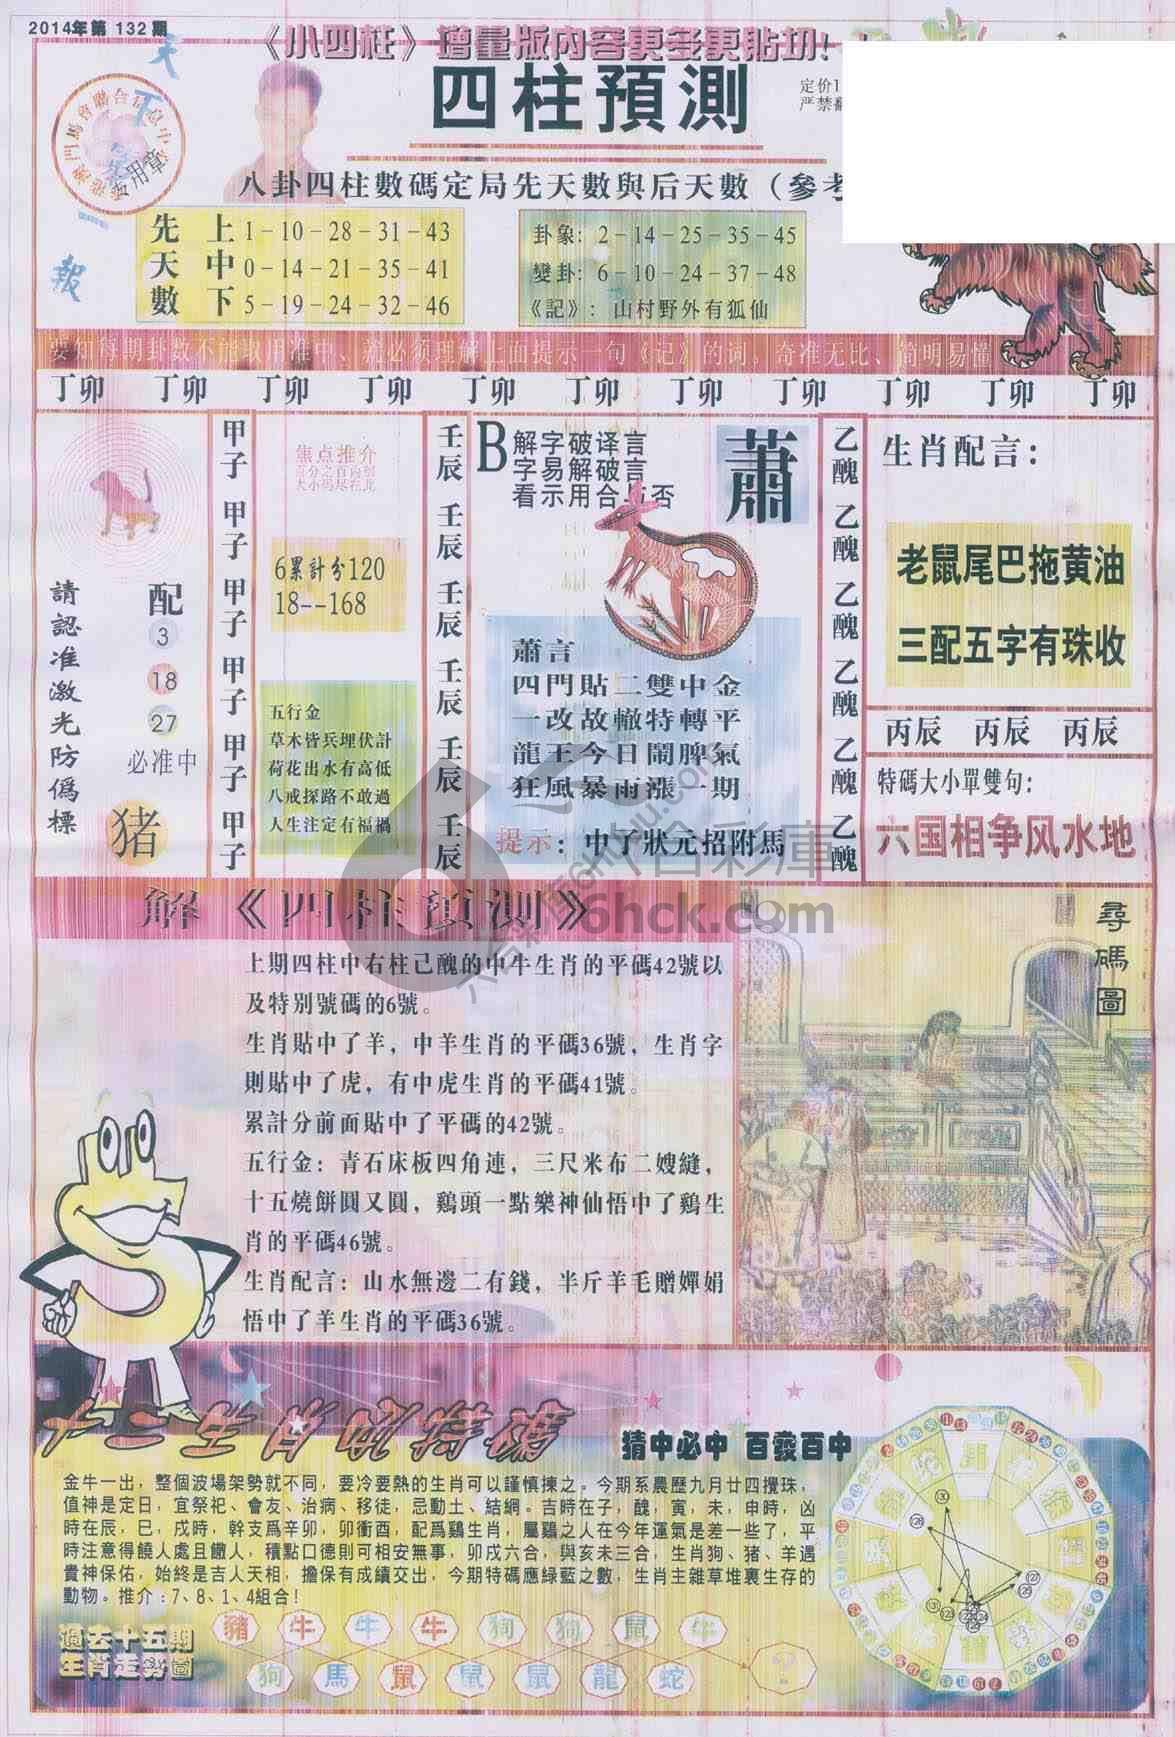 2014年第 132 期
《小四柱》增量版内容更多更貼切!
四柱預測
定价1
严禁
天下彩報
八卦四柱數碼定局先天數與后天數（參考
先天數
上 1-10-28-31-43
中 0-14-21-35-41
下 5-19-24-32-46
卦象: 2-14-25-35-45
變卦: 6-10-24-37-48
《記》: 山村野外有狐仙
要知每期卦数不能取用准中、就必须理解上面提示一句《记》的词。奇准无比、简明易懂
丁卯 丁卯 丁卯 丁卯 丁卯 丁卯 丁卯 丁卯 丁卯 丁卯 丁卯
請認准激光防僞標
配
3
18
27
必准中
猪
甲子 甲子 甲子 甲子 甲子 甲子
焦点推介
6累計分120
18--168
五行金
草木皆兵埋伏計
荷花出水有高低
八戒探路不敢過
人生注定有福禍
壬辰 壬辰 壬辰 壬辰 壬辰 壬辰
B
解字破译言
字易解破言
看示用合与否
蕭
蕭言
四門貼二雙中金
一改故轍特轉平
龍王今日鬧脾氣
狂風暴雨漲一期
提示: 中了狀元招附馬
乙醜 乙醜 乙醜 乙醜 乙醜 乙醜
生肖配言:
老鼠尾巴拖黄油
三配五字有珠收
丙辰 丙辰 丙辰
特碼大小單雙句:
六国相争风水地
六合彩庫
6hck.com
解《四柱預測》
上期四柱中右柱己醜的中牛生肖的平碼42號以
及特别號碼的6號。
生肖貼中了羊，中羊生肖的平碼36號，生肖字
則貼中了虎，有中虎生肖的平碼41號。
累計分前面貼中了平碼的42號。
五行金: 青石床板四角連，三尺米布二嫂縫，
十五燒餅圓又圓，鷄頭一點樂神仙悟中了鷄生
肖的平碼46號。
生肖配言: 山水無邊二有錢，半斤羊毛贈嬋娟
悟中了羊生肖的平碼36號。
尋碼圖
猜中必中 百發百中
金牛一出，整個波場架勢就不同，要冷要熱的生肖可以謹慎揀之。今期系農歷九月廿四攪珠，
值神是定日，宜祭祀、會友、治病、移徒，忌動土、結網。吉時在子，醜，寅，未，申時，凶
時在辰，巳，戌時，幹支爲辛卯，卯衝酉，配爲鷄生肖，屬鷄之人在今年運氣是差一些了，平
時注意得饒人處且饒人，積點口德則可相安無事，卯戌六合，與亥未三合，生肖狗、猪、羊遇
貴神保佑，始終是吉人天相，擔保有成績交出，今期特碼應緑藍之數，生肖主雜草堆裏生存的
動物。推介:7、8、1、4組合!
過去十五期
生肖走勢圖
豬 牛 牛 牛 狗 狗 鼠 牛
狗 馬 鼠 鼠 鼠 龍 蛇 ?